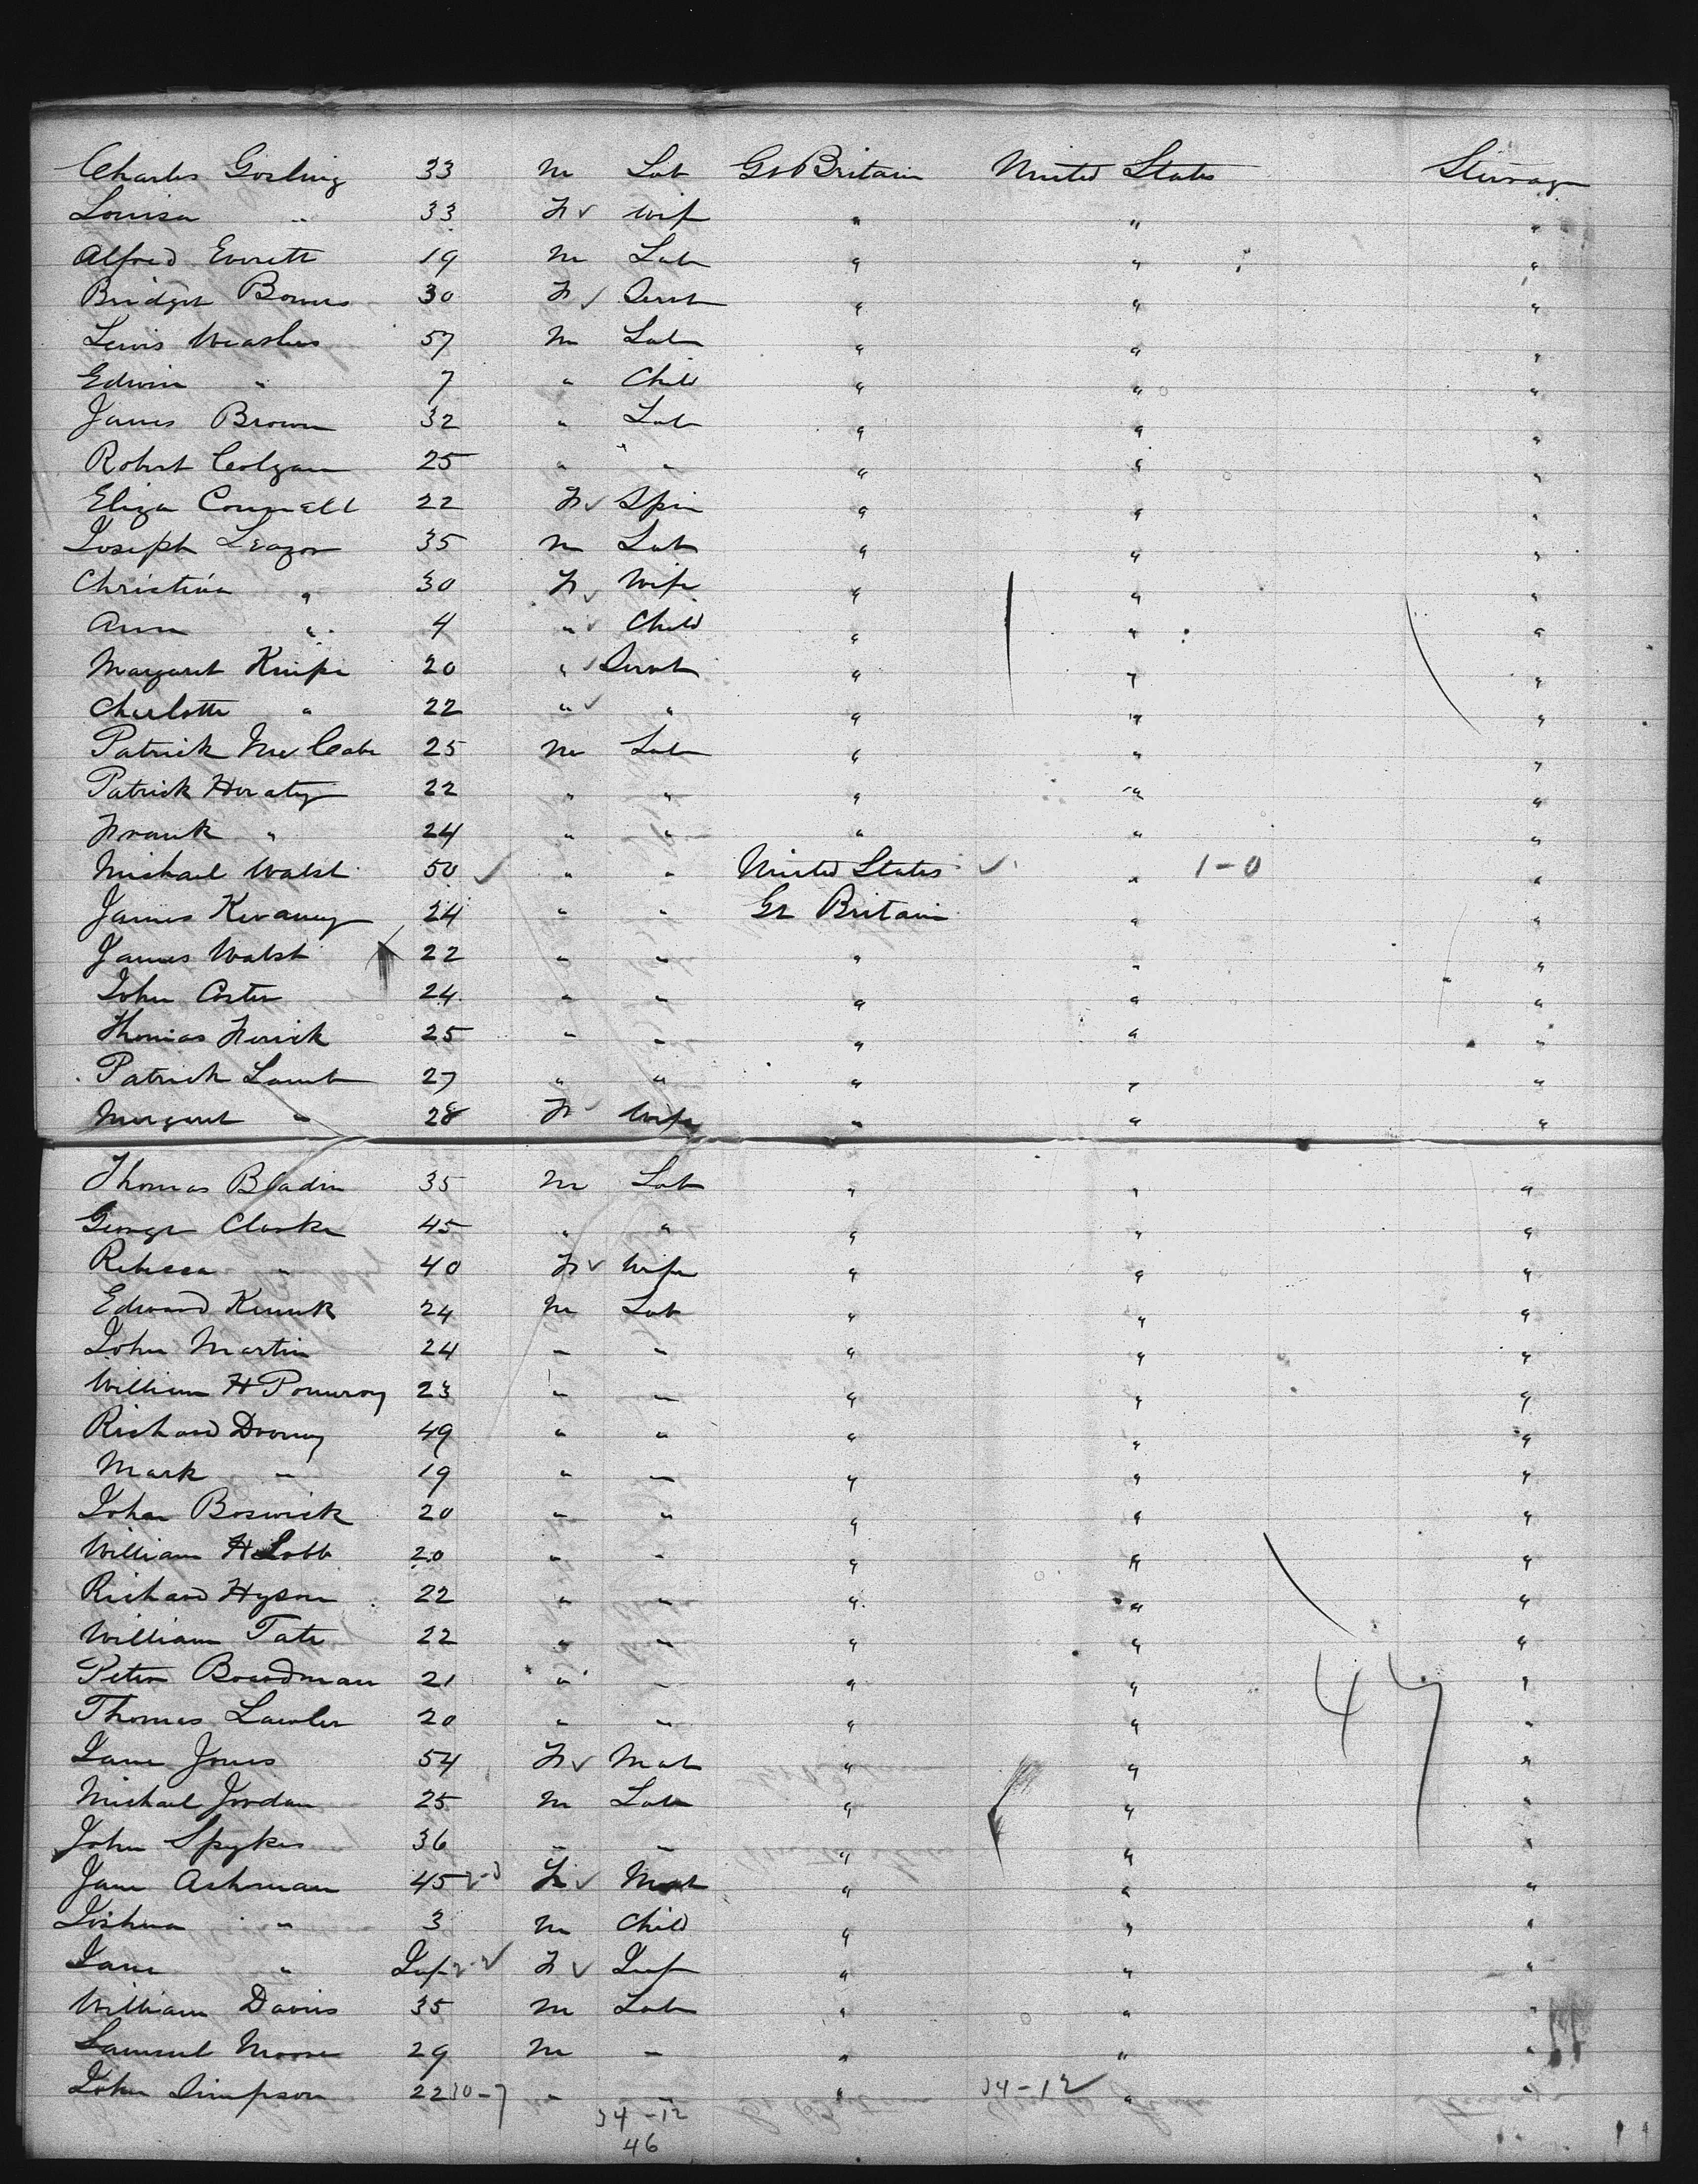 Charles Gosling 33 m Lab Gt Britain United States Steerage
Louisa " 33 F ✓ wife " " "
Alfred Everett 19 m Lab " " "
Bridget Bowers 30 F ✓ Servt " " "
Lewis 57 m Lab " " "
Edwin " 7 " Child " " "
James Brown 32 " Lab " " "
Robert Colgan 25 " " " " "
Eliza Connell 22 F ✓ Spin " " "
Joseph Leazor 35 m Lab " " "
Christina " 30 F ✓ Wife " " "
Ann " 4 " ✓ Child " " "
Margaret Knipe 20 " ✓ Servt " " "
Charlotte " 22 " ✓ " " " "
Patrick McCabe 25 m Lab " " "
Patrick Heraty 22 " " " " "
Frank " 24 " " " " "
Michael Walsh 50 ✓ " " United States ✓ " 1-0 "
James Kevaney 24 " " Gt Britain " "
James Walsh 22 " " " " "
John Coster 24 " " " " "
Thomas 25 " " " " "
Patrick Lamb 27 " " " " "
Margaret " 28 F ✓ Wife " " "
Thomas Bladin 35 m Lab " " "
George Clarke 45 " " " " "
Rebecca " 40 F ✓ Wife " " "
Edward 24 m Lab " " "
John Martin 24 " " " " "
William H Pomeroy 23 " " " " "
Richard 49 " " " " "
Mark " 19 " " " " "
John Boswick 20 " " " " "
William H Lobb 20 " " " " "
Richard Hyson 22 " " " " "
William Tate 22 " " " " "
Peter Boardman 21 " " " " "
Thomas Lawler 20 " " " " "
47
Jane Jones 54 F ✓ Mat " " "
Michael Jordan 25 m Lab " " "
John Spykes 36 " " " " "
Jane Ashman 45 F ✓ Mat " " "
Joshua " 3 m Child " " "
Jane " Inf 2-2 ✓ F ✓ Inf " " "
William Davis 35 m Lab " " "
Samuel Moore 29 m " " " "
John Simpson 22 10-7 " " " 34-12 " "
34-12
46